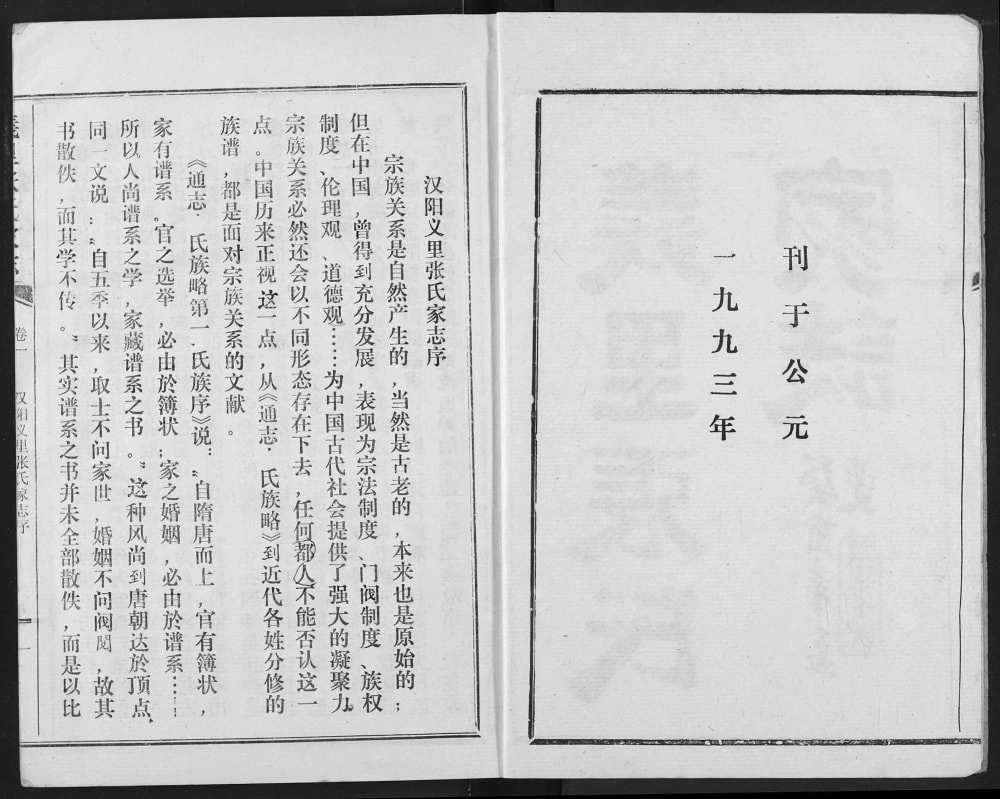 刊于公元
一九九三年
汉阳义里张氏家志序
宗族关系是自然产生的，当然是古老的，本来也是原始的；
但在中国，曾得到充分发展，表现为宗法制度、门阀制度、族权
制度、伦理观、道德观……为中国古代社会提供了强大的凝聚力。
宗族关系必然还会以不同形态存在下去，任何都人不能否认这一
点。中国历来正视这一点，从《通志·氏族略》到近代各姓分修的
族谱，都是面对宗族关系的文献。
《通志·氏族略第一·氏族序》说：“自隋唐而上，官有簿状，
家有谱系。官之选举，必由於簿状；家之婚姻，必由於谱系……
所以人尚谱系之学，家藏谱系之书。”这种风尚到唐朝达於顶点，
同一文说：“自五季以来，取士不问家世，婚姻不问阀阅，故其
书散佚，而其学不传。”其实谱系之书并未全部散佚，而是以比
卷一
汉阳义里张氏家志序
一